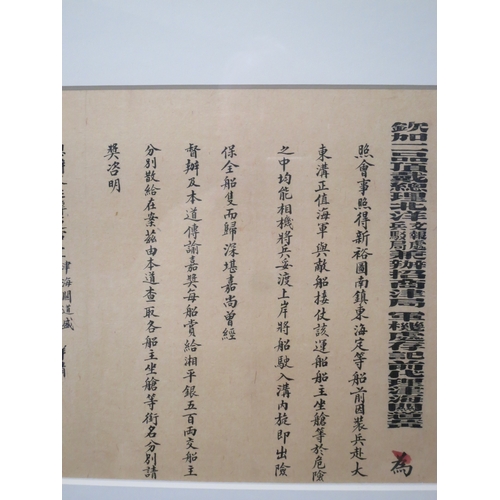 欽加二品頂戴總理北洋文報處兵駁局兼辦招商津局 軍機處存記前代理津海關道黃 為
照會事照得新裕圖南鎮東海定等船前因裝兵赴大
東溝正值海軍與敵船接仗該運船船主坐艙等於危險
之中均能相機將兵妥渡上岸將船駛入溝內旋即出險
保全船隻而歸深堪嘉尚曾經
督辦及本道傳諭嘉獎每船賞給湘平銀五百兩交船主
分別散給在案茲由本道查取各船主坐艙等銜名分別請
獎咨明
津海關道盛